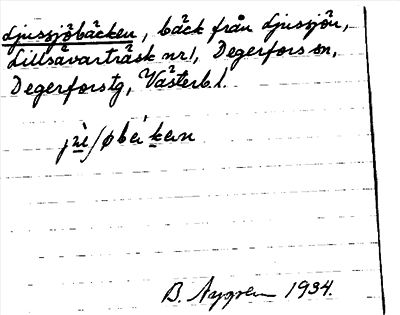 Ljussjöbäcken, bäck från Ljussjön,
Lillsävarträsk nr 1, Degerfors sn,
Degerforstg, Västerb. l.
B. Nygren 1934.